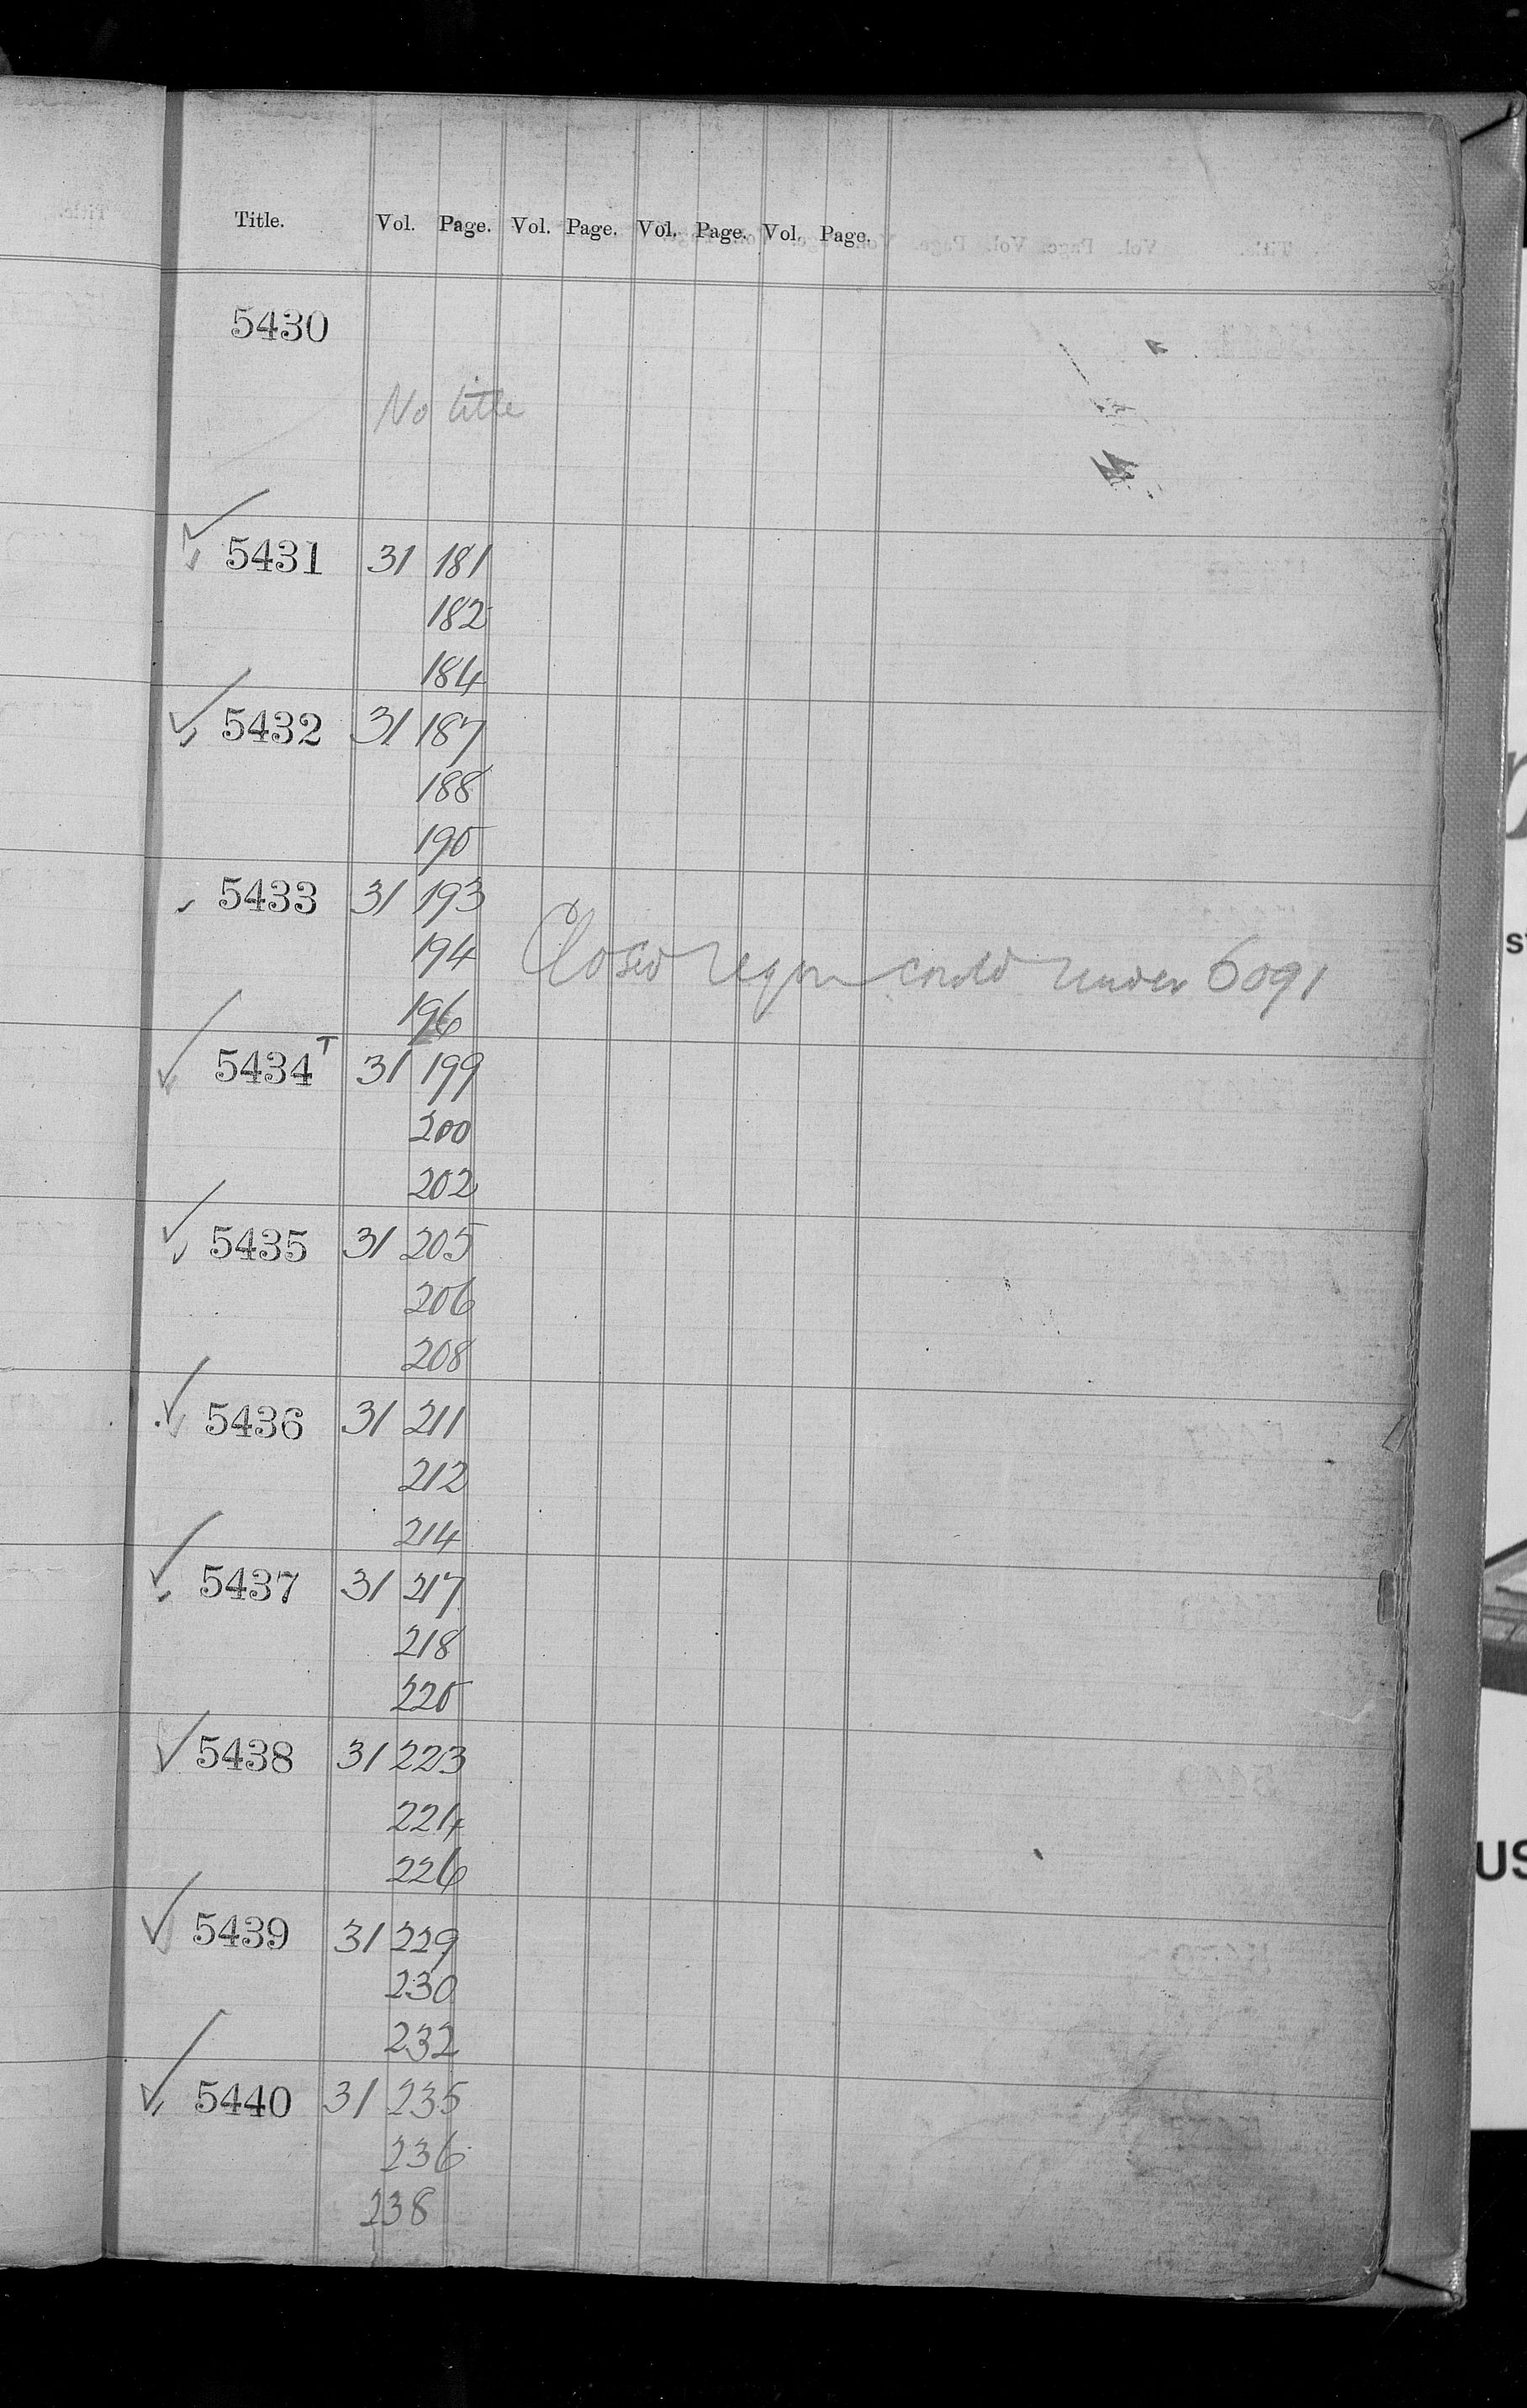 Title. Vol. Page. Vol. Page. Vol. Page. Vol. Page.
5430
No title
5431 31 181
182
184
5432 31 187
188
190
5433 31 193
194 Closed regn contd under 6091
196
5434 T 31 199
200
202
5435 31 205
206
208
5436 31 211
212
214
5437 31 217
218
220
5438 31 223
224
226
5439 31 229
230
232
5440 31 235
236
238
US